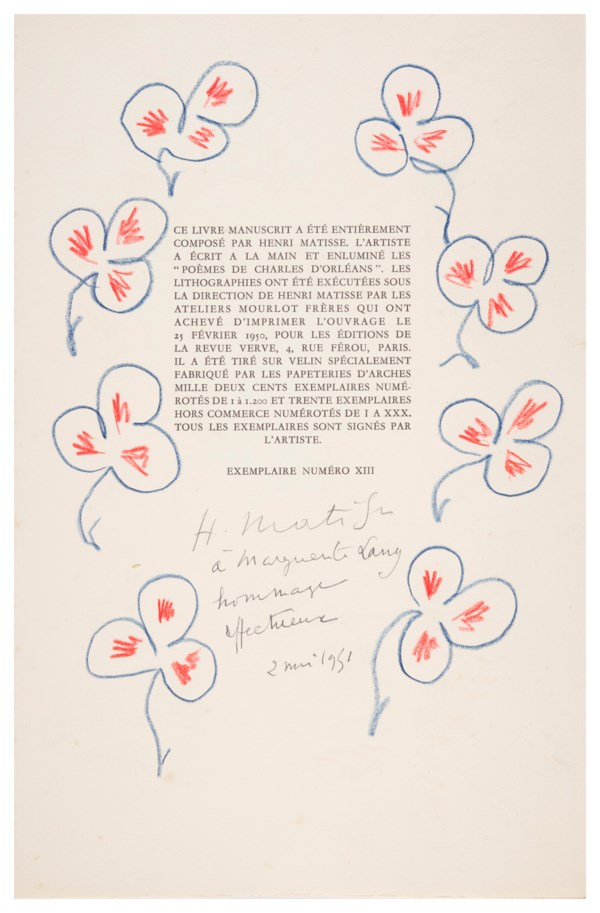 CE LIVRE MANUSCRIT A ÉTÉ ENTIÈREMENT
COMPOSÉ PAR HENRI MATISSE. L'ARTISTE
A ÉCRIT A LA MAIN ET ENLUMINÉ LES
"POÈMES DE CHARLES D'ORLÉANS". LES
LITHOGRAPHIES ONT ÉTÉ EXÉCUTÉES SOUS
LA DIRECTION DE HENRI MATISSE PAR LES
ATELIERS MOURLOT FRÈRES QUI ONT
ACHEVÉ D'IMPRIMER L'OUVRAGE LE
25 FÉVRIER 1950, POUR LES ÉDITIONS DE
LA REVUE VERVE, 4, RUE FÉROU, PARIS.
IL A ÉTÉ TIRÉ SUR VELIN SPÉCIALEMENT
FABRIQUÉ PAR LES PAPETERIES D'ARCHES
MILLE DEUX CENTS EXEMPLAIRES NUMÉ-
ROTÉS DE 1 à 1.200 ET TRENTE EXEMPLAIRES
HORS COMMERCE NUMÉROTÉS DE I A XXX.
TOUS LES EXEMPLAIRES SONT SIGNÉS PAR
L'ARTISTE.
EXEMPLAIRE NUMÉRO XIII
H. Matisse
à Marguerite Lang
hommage
affectueux
2 mai 1951